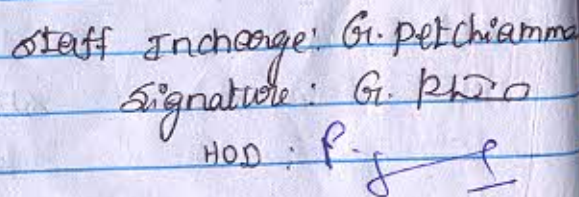 Staff Incharge: G. petchiamma
Signature: G.
HOD : P.